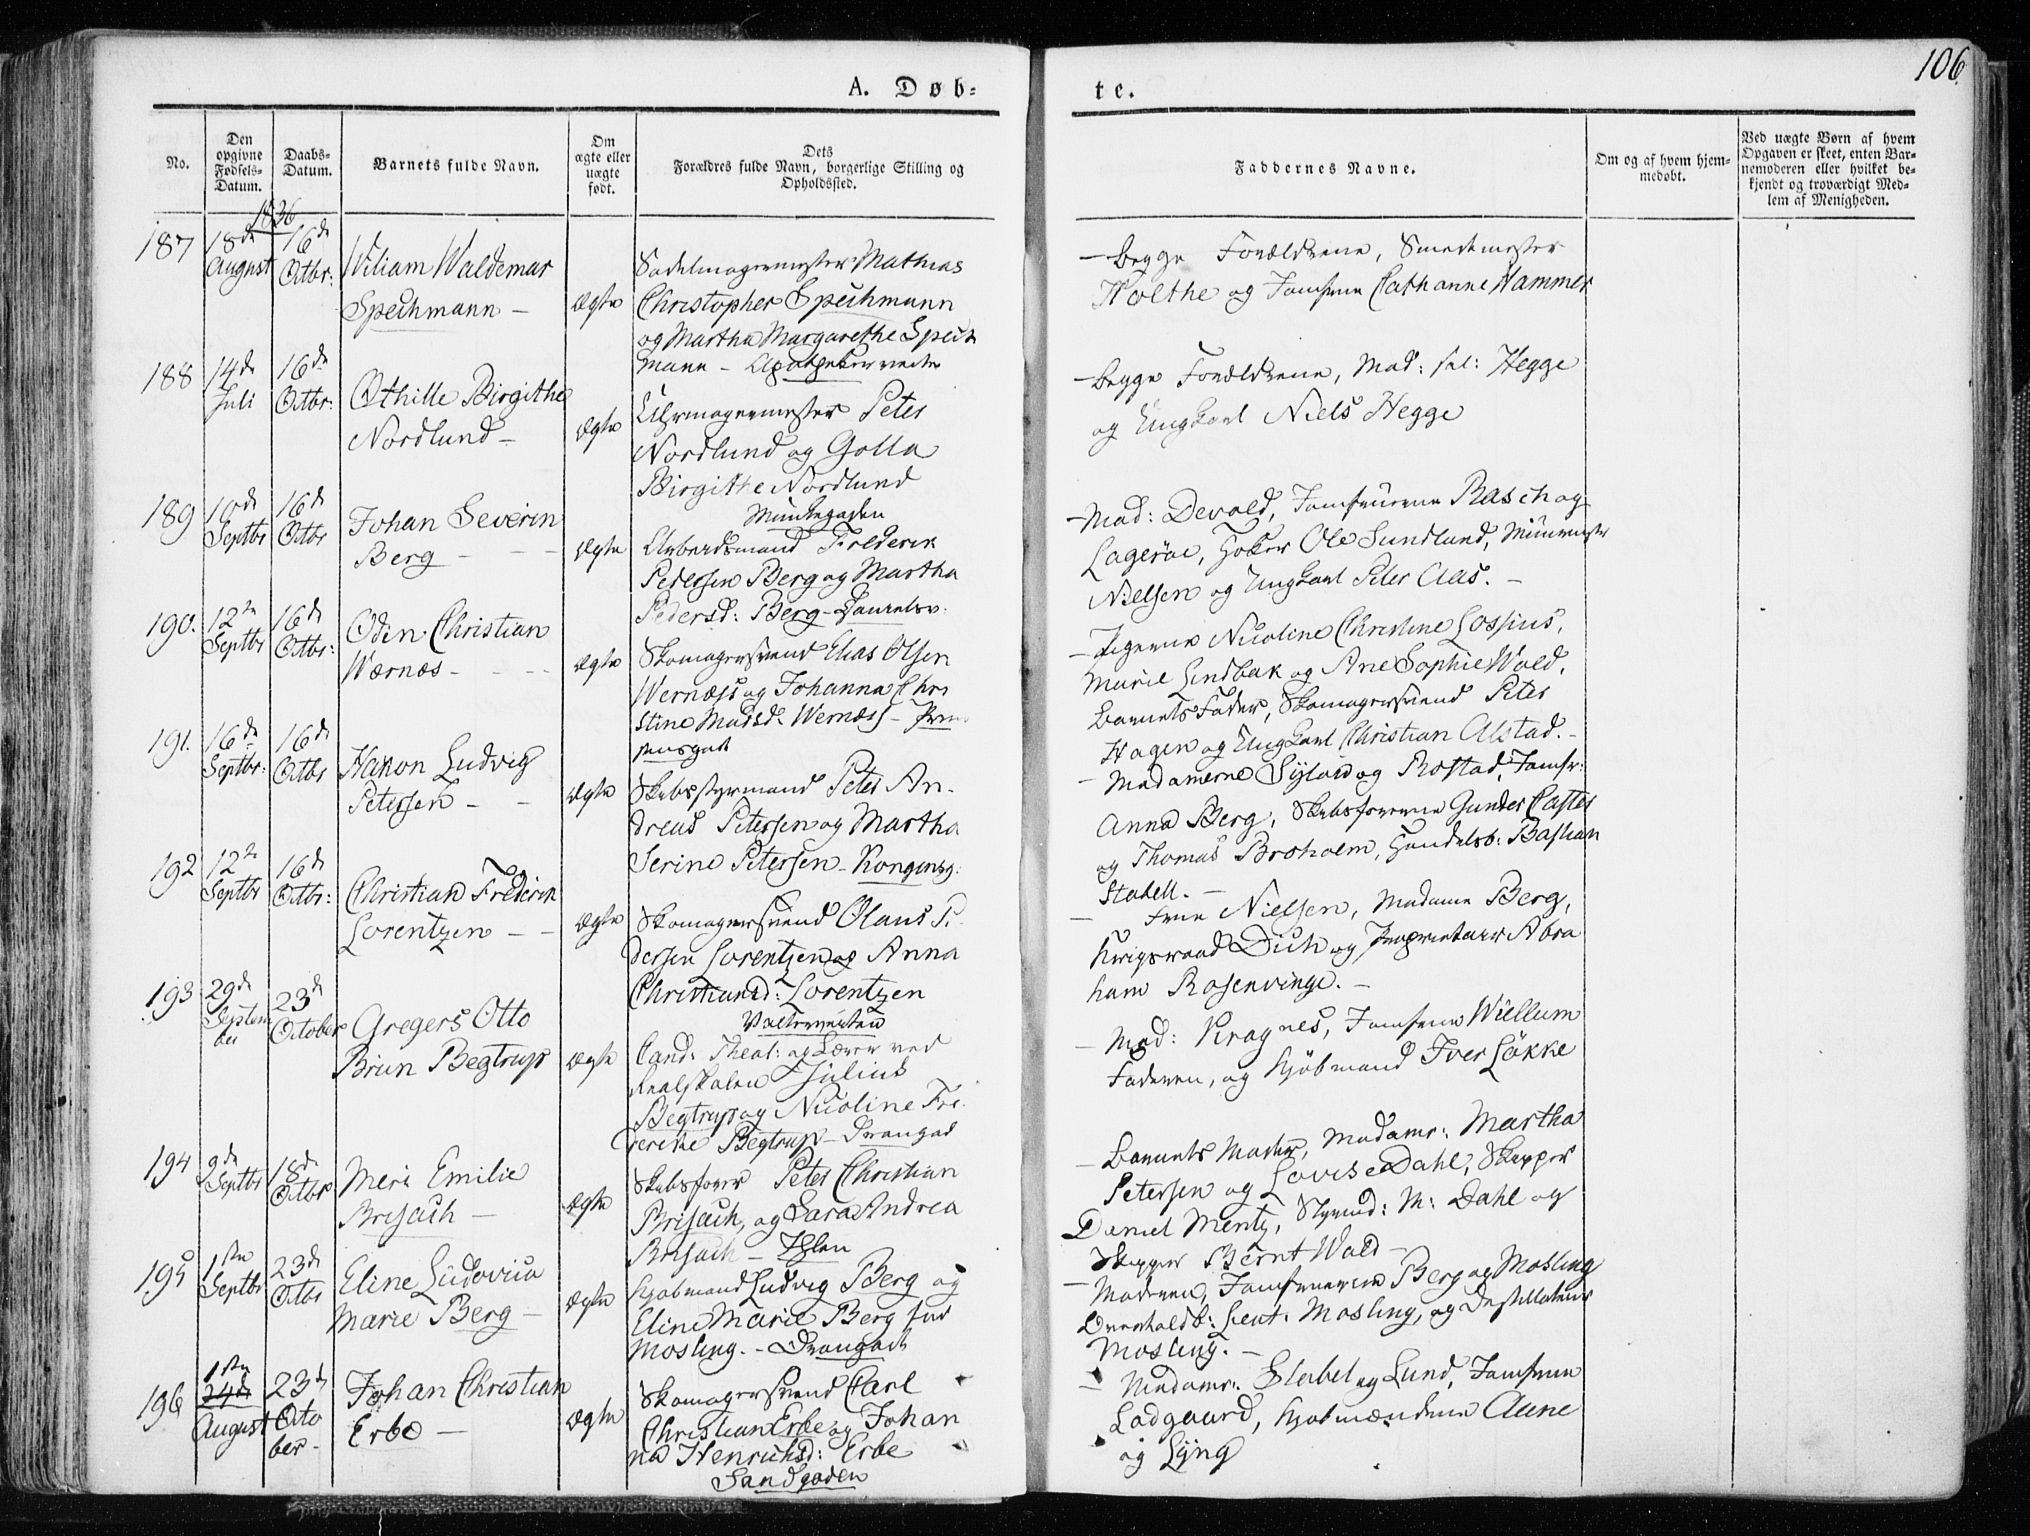 A. Døb-
te.
106
No.
Den opgivne Fødsels-Datum.
Daabs-Datum.
Barnets fulde Navn.
Om ægte eller uægte født.
Dets Forældres fulde Navn, borgerlige Stilling og Opholdssted.
Faddernes Navne.
Om og af hvem hjemmedøbt.
Ved uægte Børn af hvem Opgaven er skeet, enten Barnemoderen eller hvilket bekjendt og troværdigt Medlem af Menigheden.
1836
187 18de August 16de Octbr:
Wiliam Waldemar
Spechmann –
Ægte
Sadelmagermester Mathias
Christopher Spechmann
og Martha Margarethe Spech
mann –
– Begge Forældrene, Smedemester
Holthe og Jomfrue Cathanne Hammer
188 14de Juli 16de Octbr:
Othille Birgithe
Nordlund –
Ægte
Uhrmagermester Peter
Nordlund og Golla
Birgitte Nordlund
Munkegaden
– Begge Forældrene, Mad: Hegge
og Ungkarl Niels Hegge
189 10de Septbr 16de Octbr
Johan Severin
Berg – – –
Ægte
Arbeidsmand Frederik
Pedersen Berg og Martha
Pedersd: Berg –
– Mad: Devold, Jomfruerne Rasch og
Lagerøe, Høker Ole Sundlund, Muurmester
Nielsen og Ungkarl Peter Aas. –
190. 12te Septbr 16de Octbr:
Oden Christian
Wærnæs – – –
Ægte
Skomagersvend Elias Olsen
Wernæss og Johanna Chri
stine Madsd. Wernæss – Prin
sensgade
– Pigerne Nicoline Christine Lossius,
Marie Lindbak og Ane Sophie Wold,
Barnets Fader, Skomagersvend Peter
Hagen og Ungkarl Christian Alstad. –
191. 16de Septbr: 16de Octbr
Hakon Ludvig
Petersen – –
Ægte
Skibsstyrmand Peter An-
dreas Petersen og Martha
Serine Petersen – Kongensg:
– Madamerne Sylow og Rostad, Jomfr:
Anna Berg, Skibsførerne Gunder Caster
og Thomas Broholm, Handelsb: Bastian
Stabell. –
192 12te Septbr 16de Octbr:
Christian Frederik
Lorentzen – –
Ægte
Skomagersvend Olaus P.
dersen Lorentzen og Anna
Christiansd: Lorentzen
– Frue Nielsen, Madame Berg,
Krigsraad Dich og Proprietair Abra
ham Rosenvinge. –
193 29de Septem ber 23de October
Gregers Otto
Brun Begtrup
Ægte
Cand: Theol: og Lærer ved
Realskolen Julius
Begtrup og Nicoline Fre-
derikke Begtrup –
– Mad: Kragnes, Jomfrue Wiellum
Faderen, og Kjøbmand Iver Løkke
194 9de Septbr 18de Octbr
Meri Emilie
Brisach –
Ægte
Skibsfører Peter Christian
Brisach, og Sara Andrea
Brisach – Ihlen
– Barnets Moder, Madame: Martha
Petersen og Lovise Dahl, Skipper
Daniel Mentz, Styrmd: M: Dahl og
Skipper Bernt Wold –
195 1ste Septbr 23de Octbr
Eline Ludovica
Marie Berg –
Ægte
Kjøbmand Ludvig Berg og
Eline Marie Berg fød
Mosling. –
– Moderen, Jomfruerne Berg og Mosling
Overholdb: Lieut: Mosling, og Destillateur
Mosling. –
196 1ste 24de August 23de Octo ber –
Johan Christian
Erbe –
Ægte
Skomagersvend Carl
Christian Erbe og Johan
na Henrichsd: Erbe
Sandgaden
– Madame: Slabel og Lund, Jomfrue
Ladgaard, Kjøbmændene Aune
og Lyng